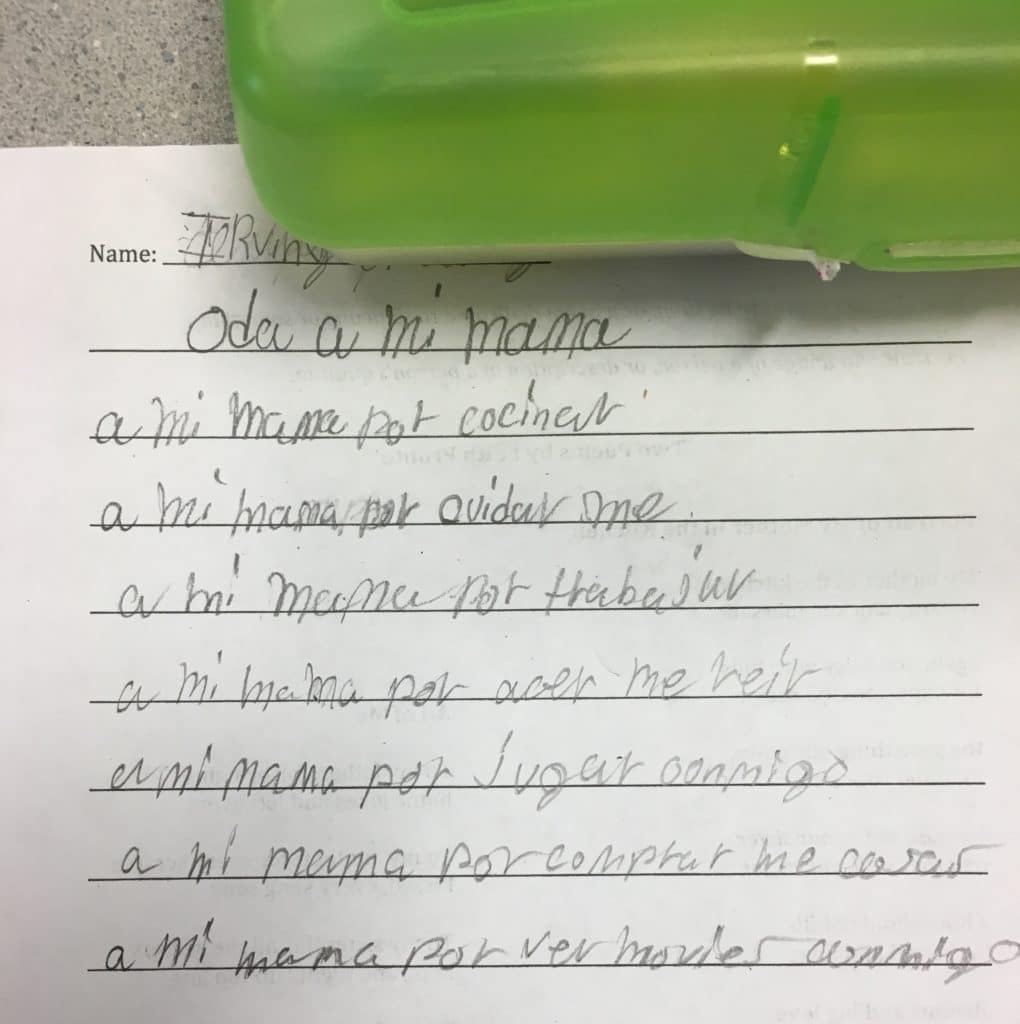 Name: Jerving
Oda a mi mama
a mi mama por cocinar
a mi mama por cuidar me
a mi mama por trabajar
a mi mama por acer me reir
a mi mama por jugar conmigo
a mi mama por comprar me cosas
a mi mama por ver movies conmigo